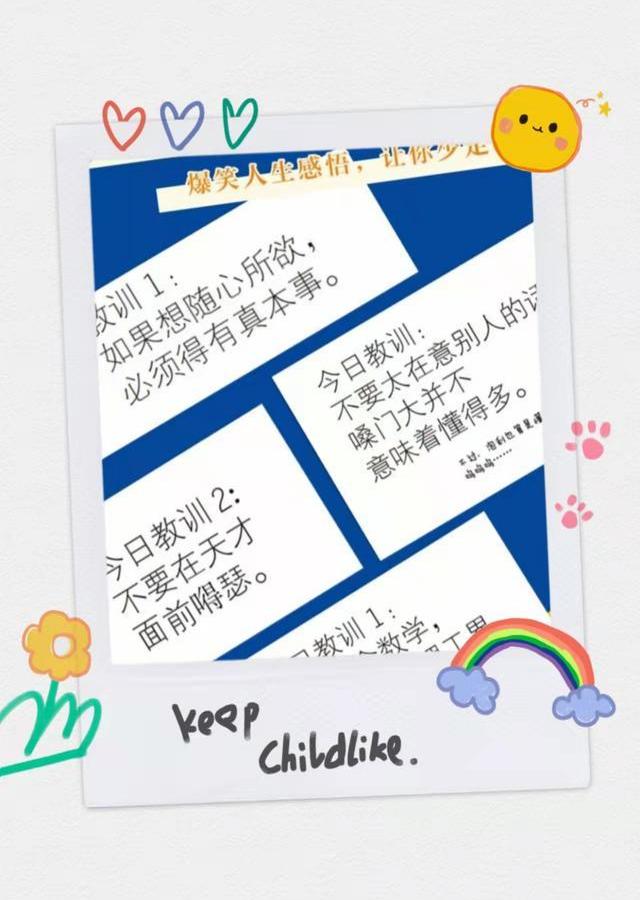 爆笑人生感悟，让你少走
教训 1：
如果想随心所欲，
必须得有真本事。
今日教训：
不要太在意别人的话
嗓门大并不
意味着懂得多。
不过，
呜呜呜……
今日教训 2：
不要在天才
面前嘚瑟。
日教训 1：
数学，
keep
Childlike.